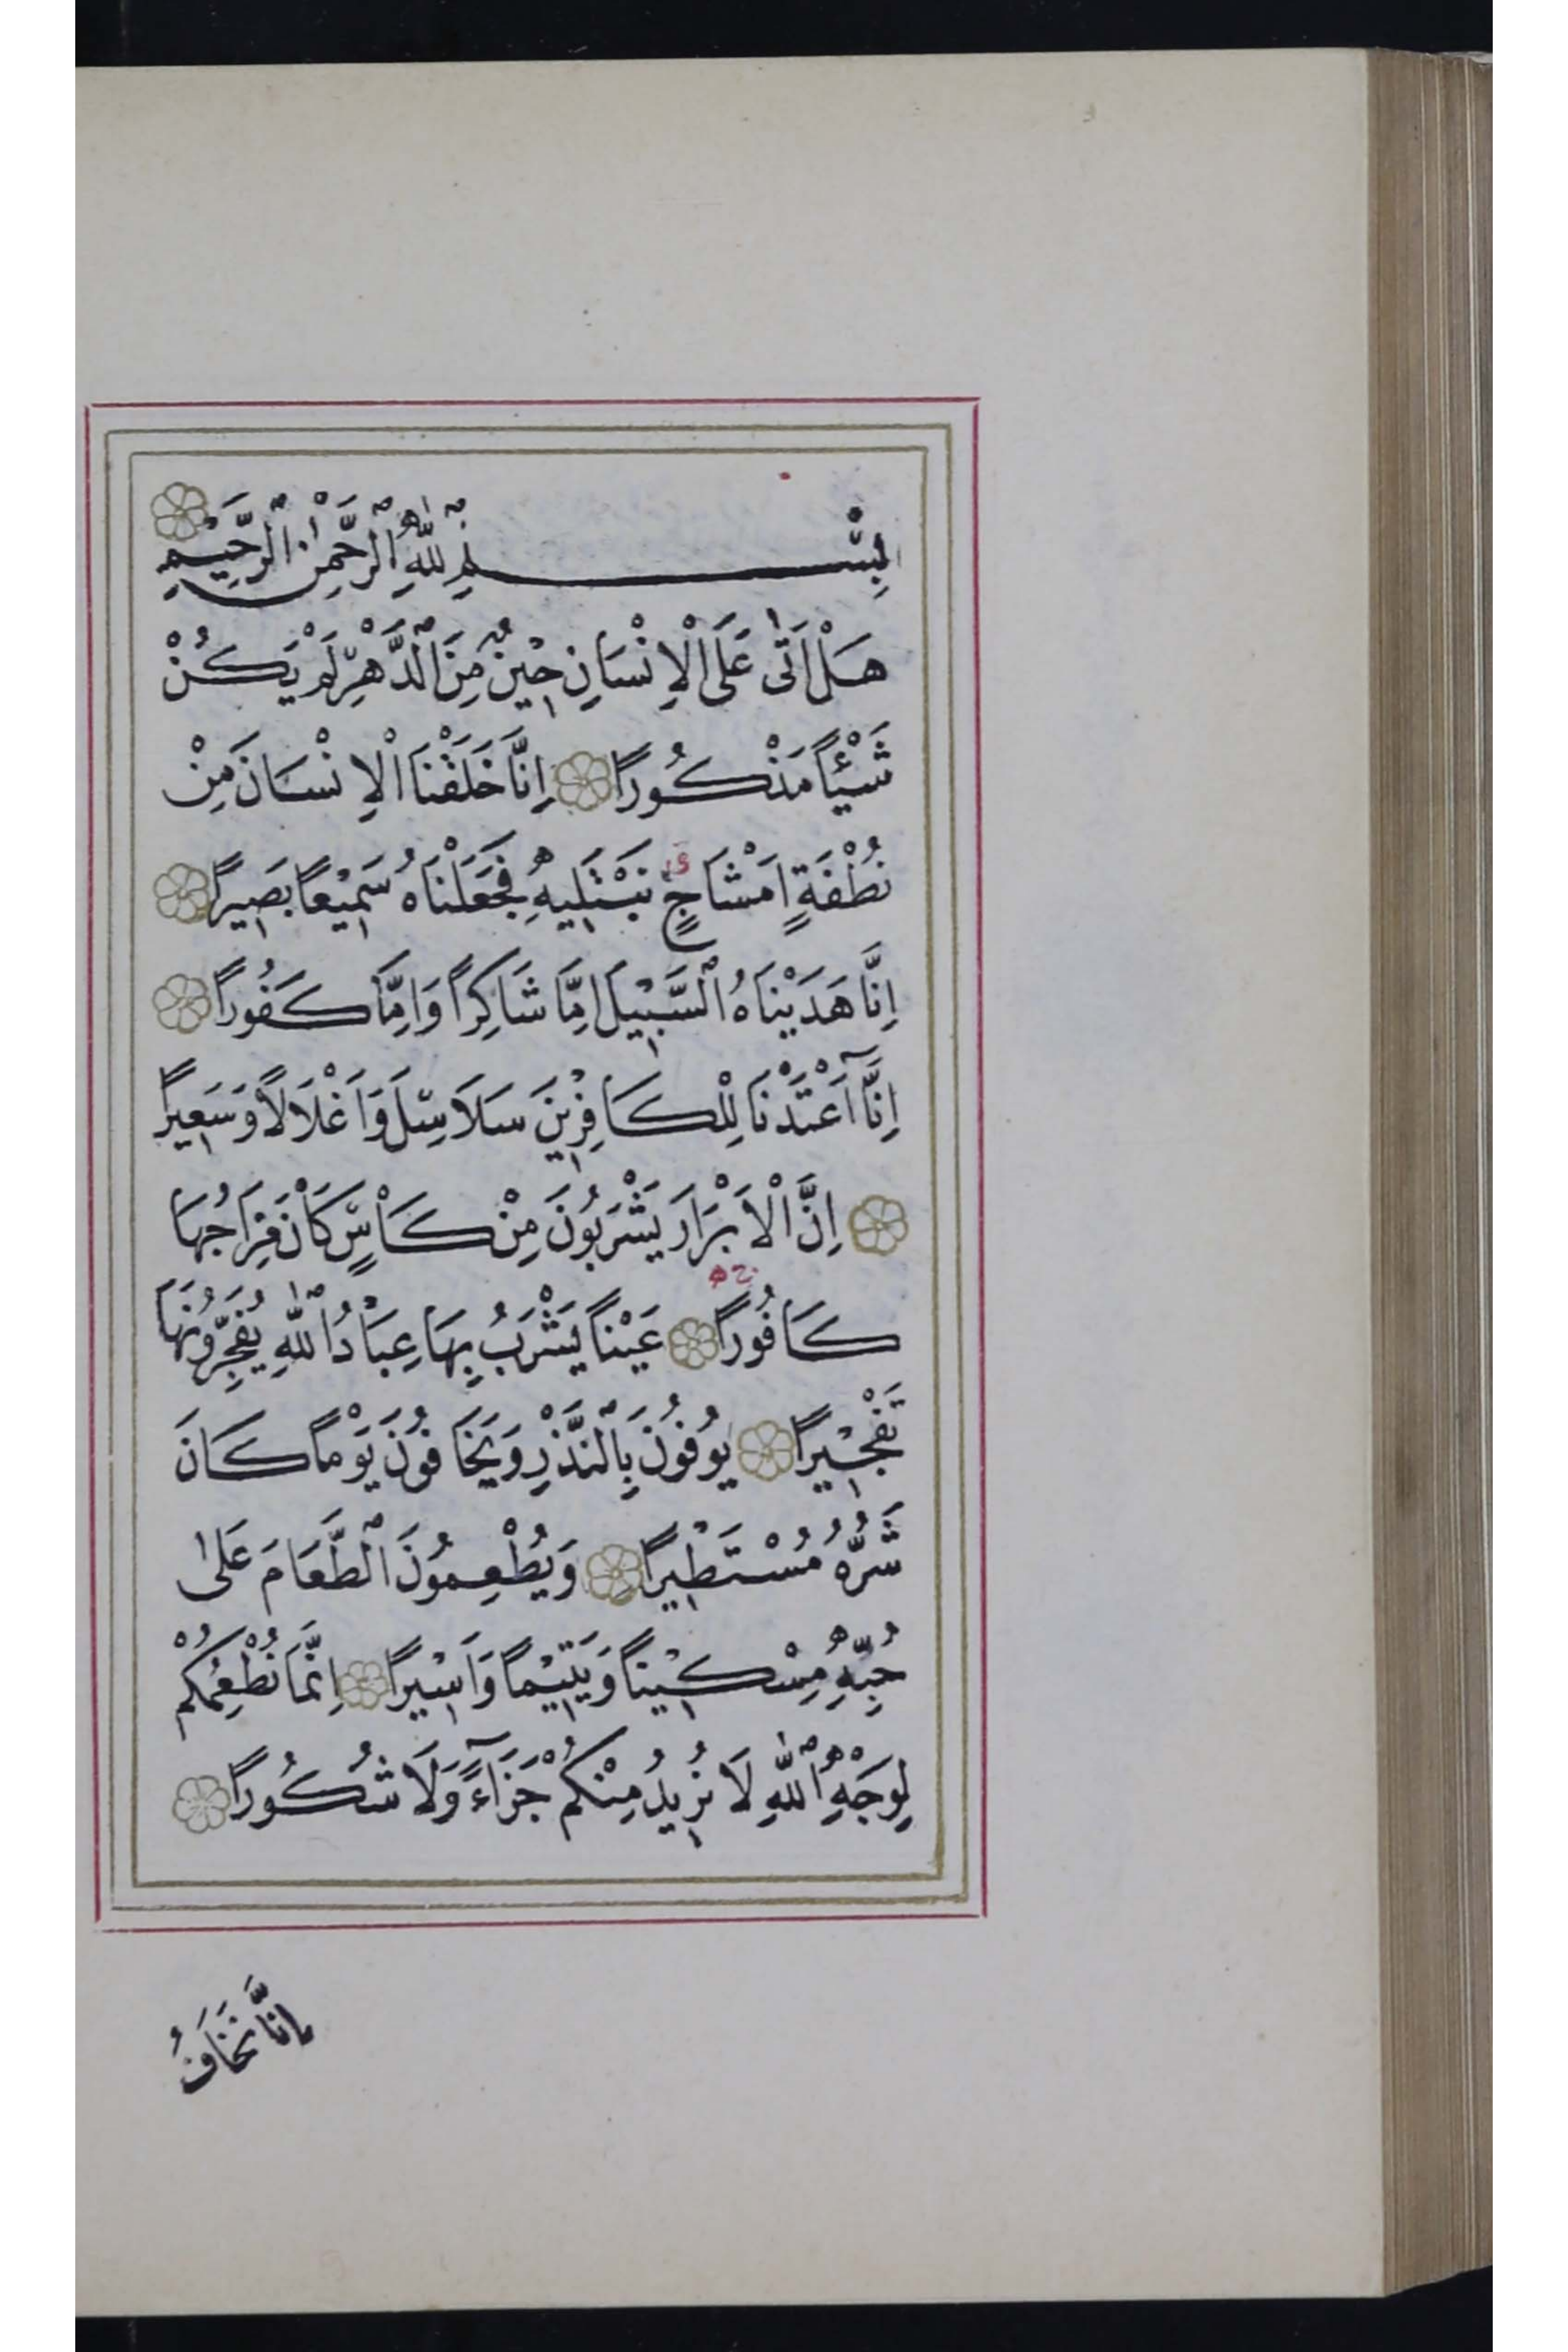 بِسْمِ ٱللّٰهِ ٱلرَّحْمٰنِ ٱلرَّحِيْمِ
هَلْ اَتٰى عَلَى الْاِنْسَانِ حِيْنٌ مِنَ ٱلدَّهْرِ لَمْ يَكُنْ
شَيْئاً مَذْكُوراً اِنَّا خَلَقْنَا الْاِنْسَانَ مِنْ
نُطْفَةٍ اَمْشَاجٍ نَبْتَلِيهِ فَجَعَلْنَاهُ سَمِيْعًا بَصِيراً
اِنَّا هَدَيْنَاهُ ٱلسَّبِيْلَ اِمَّا شَاكِراً وَاِمَّا كَفُوراً
اِنَّٓا اَعْتَدْنَا لِلْكَافِرِيْنَ سَلَاسِلَ وَاَغْلَالًا وَسَعِيراً
اِنَّ الْاَبْرَارَ يَشْرَبُونَ مِنْ كَاْسٍ كَانَ مِزَاجُهَا
كَافُوراً عَيْناً يَشْرَبُ بِهَا عِبَادُ ٱللّٰهِ يُفَجِّرُونَهَا
تَفْجِيْراً يُوفُونَ بِٱلنَّذْرِ وَيَخَافُونَ يَوْماً كَانَ
شَرُّهُ مُسْتَطِيْراً وَيُطْعِمُونَ ٱلطَّعَامَ عَلٰى
حُبِّهِ مِسْكِيْناً وَيَتِيْماً وَاَسِيْراً اِنَّمَا نُطْعِمُكُمْ
لِوَجْهِ ٱللّٰهِ لَا نُرِيدُ مِنْكُمْ جَزَٓاءً وَلَا شُكُوراً
اِنَّا نَخَافُ